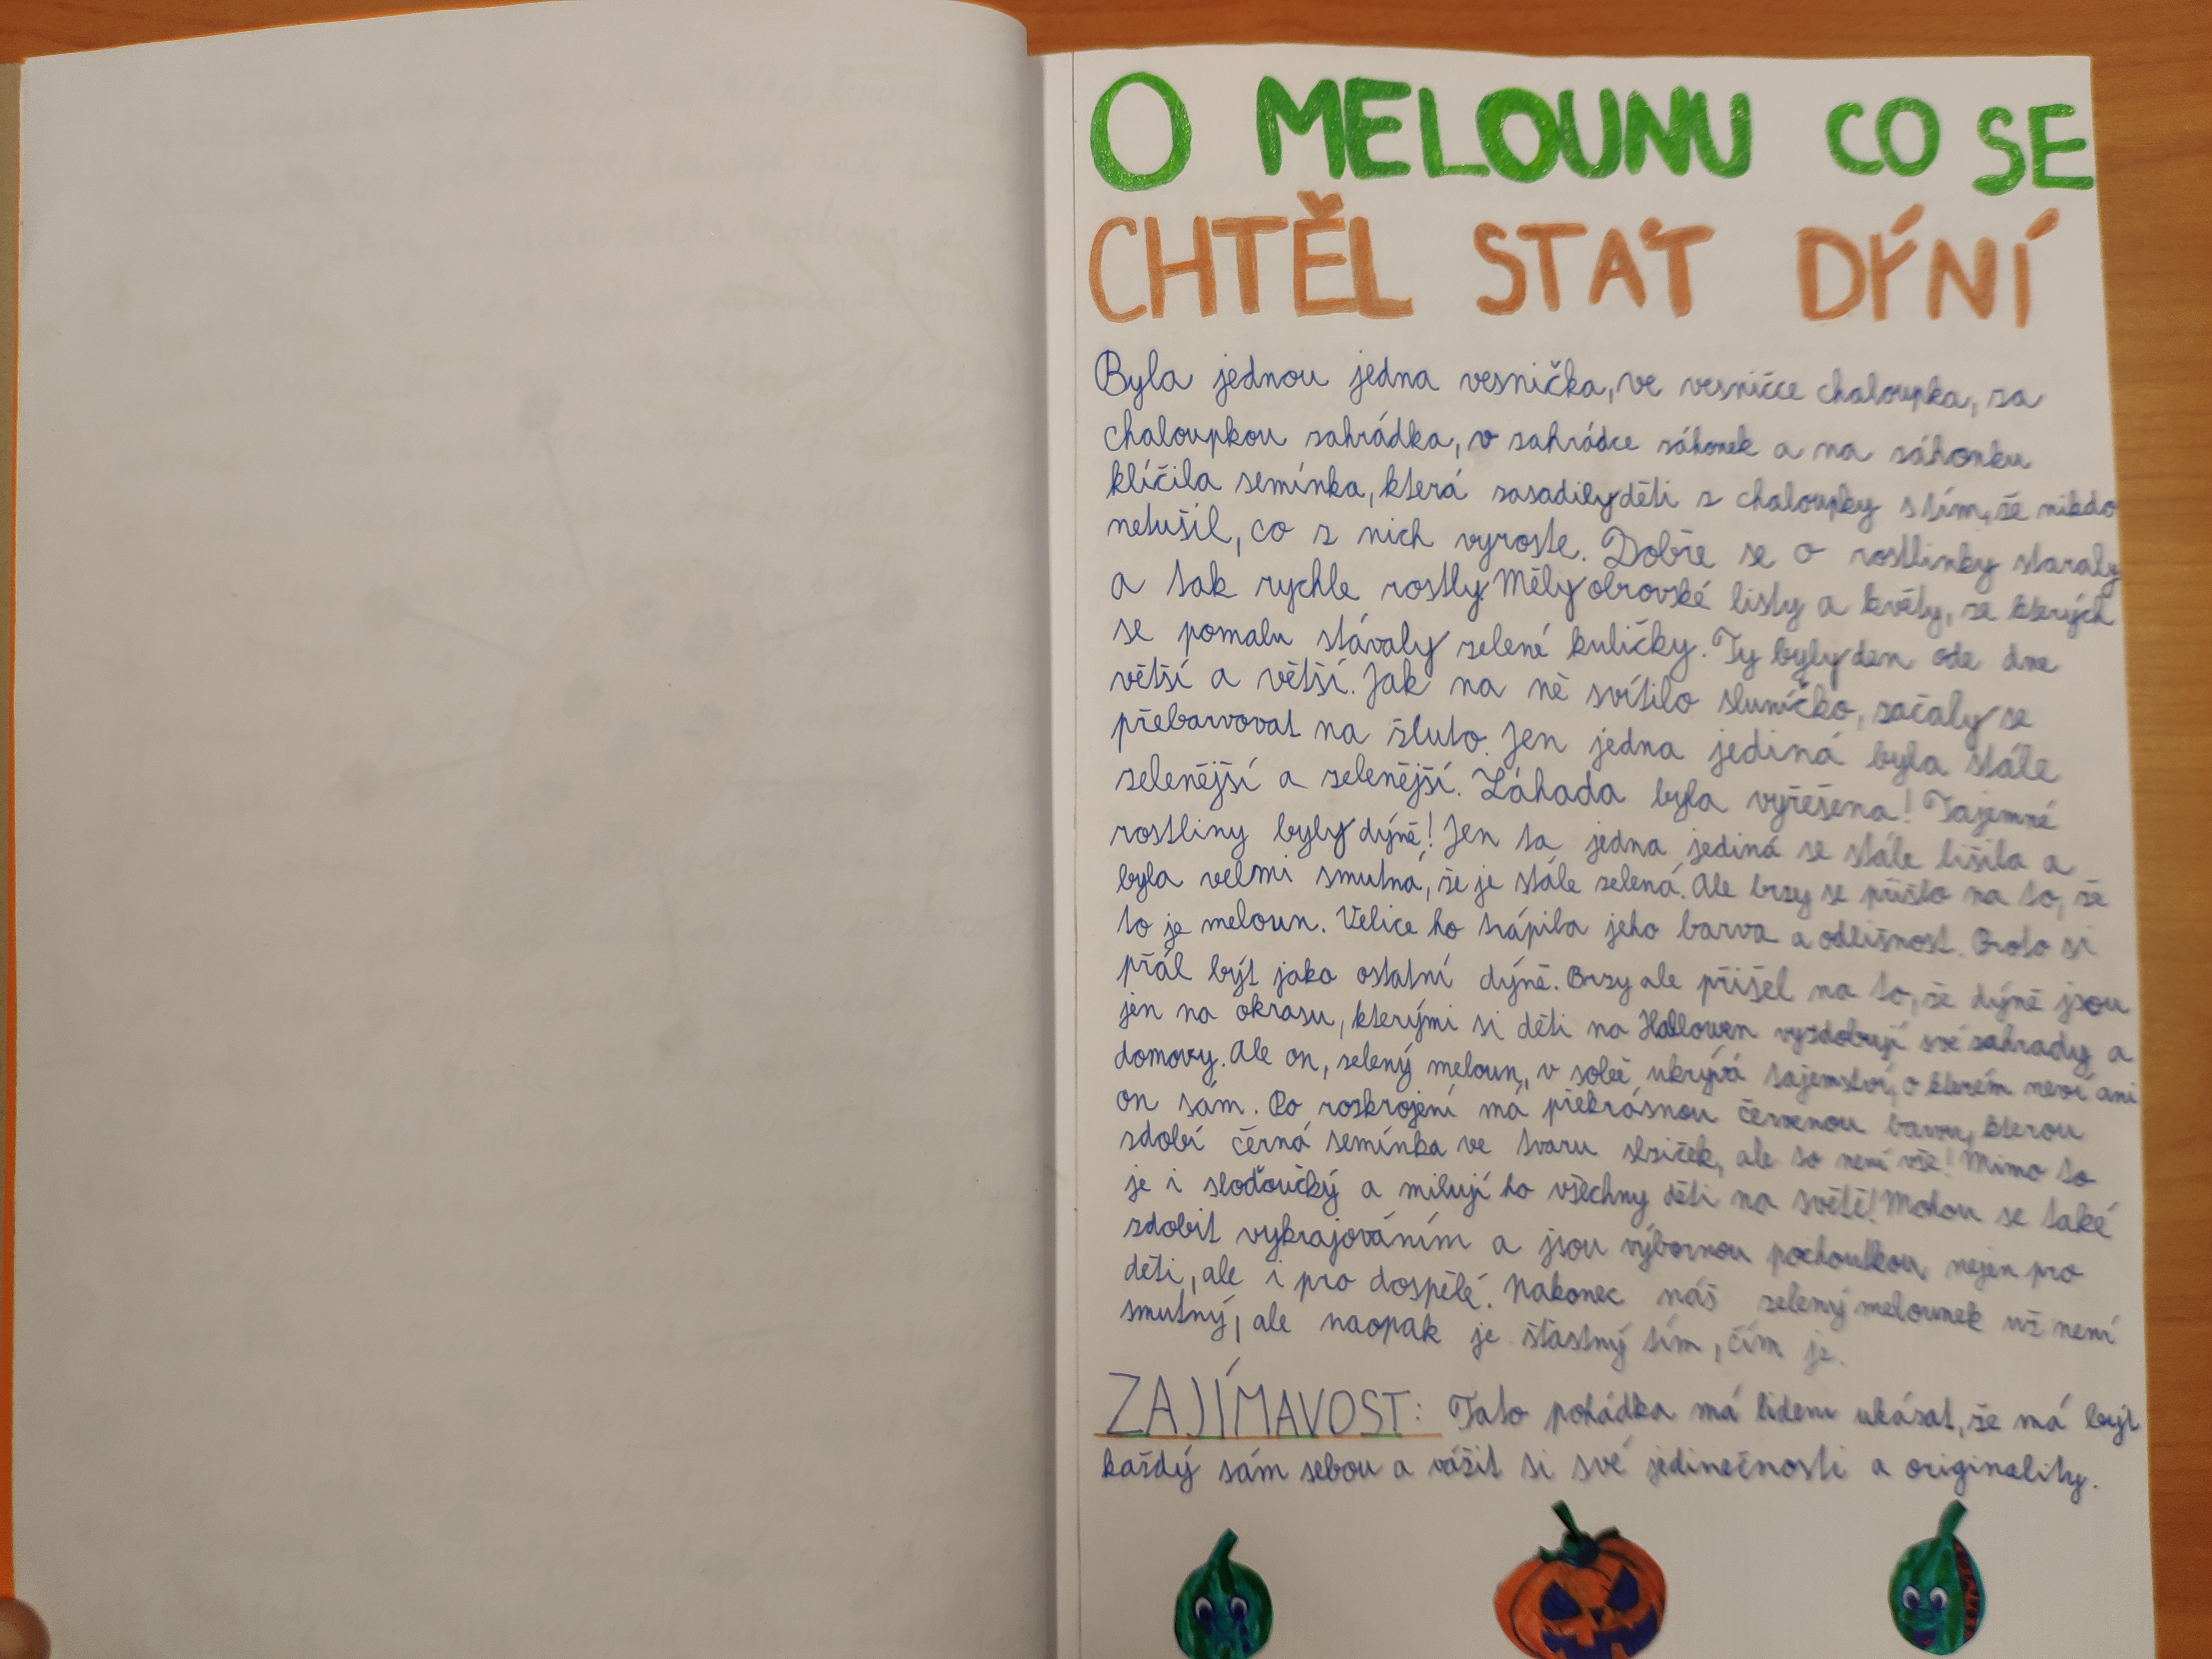 O MELOUNU CO SE
CHTĚL STÁT DÝNÍ
Byla jednou jedna vesnička, ve vesničce chaloupka, za
chaloupkou zahrádka, v zahrádce záhonek a na záhonku
klíčila semínka, která zasadily děti z chaloupky s tím, že nikdo
netušil, co z nich vyroste. Dobře se o rostlinky staraly
a tak rychle rostly. Měly obrovské listy a květy, ze kterých
se pomalu stávaly zelené kuličky. Ty byly den ode dne
větší a větší. Jak na ně svítilo sluníčko, začaly se
přebarvovat na žluto. Jen jedna jediná byla stále
zelenější a zelenější. Záhada byla vyřešena! Tajemné
rostliny byly dýně! Jen ta jedna jediná se stále lišila a
byla velmi smutná, že je stále zelená. Ale brzy se přišlo na to, že
to je meloun. Velice ho trápila jeho barva a odlišnost. Proto si
přál být jako ostatní dýně. Brzy ale přišel na to, že dýně jsou
jen na okrasu, kterými si děti na Hallowen vyzdobují své zahrady a
domovy. Ale on, zelený meloun, v sobě ukrývá tajemství, o kterém neví ani
on sám. Po rozkrojení má překrásnou červenou barvu, kterou
zdobí černá semínka ve tvaru slziček, ale to není vše! Mimo to
je i sloďoučký a milují ho všechny děti na světě! Mohou se také
zdobit vykrajováním a jsou výbornou pochoutkou nejen pro
děti, ale i pro dospělé. Nakonec náš zelený melounek už není
smutný, ale naopak je šťastný tím, čím je.
ZAJÍMAVOST: Tato pohádka má lidem ukázat, že má být
každý sám sebou a vážit si své jedinečnosti a originality.